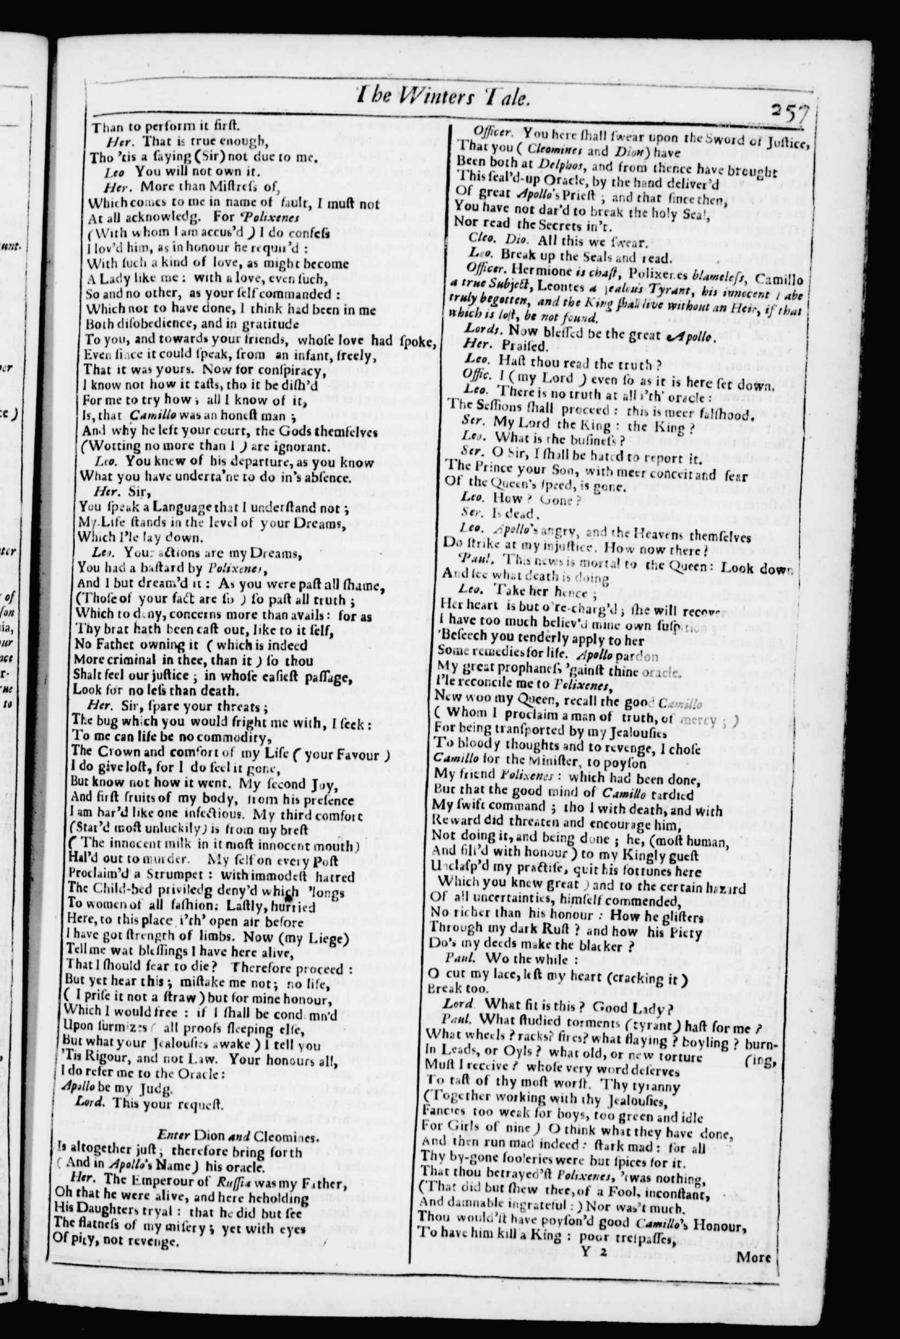 The Winters Tale.
257
Than to perform it first.
Her. That is true enough,
Tho 'tis a saying (Sir) not due to me.
Leo You will not own it.
Her. More than Mistress of,
Which comes to me in name of fault, I must not
At all acknowledg. For Polixenes
(With whom I am accus'd) I do confess
I lov'd him, as in honour he requir'd:
With such a kind of love, as might become
A Lady like me: with a love, even such,
So and no other, as your self commanded:
Which not to have done, I think had been in me
Both disobedience, and in gratitude
To you, and towards your friends, whose love had spoke,
Even since it could speak, from an infant, freely,
That it was yours. Now for conspiracy,
I know not how it tasts, tho it be dish'd
For me to try how; all I know of it,
Is, that Camillo was an honest man;
And why he left your court, the Gods themselves
(Wotting no more than I) are ignorant.
Leo. You knew of his departure, as you know
What you have underta'ne to do in's absence.
Her. Sir,
You speak a Language that I understand not;
My Life stands in the level of your Dreams,
Which I'le lay down.
Leo. Your actions are my Dreams,
You had a bastard by Polixenes,
And I but dream'd it: As you were past all shame,
(Those of your fact are so) so past all truth;
Which to deny, concerns more than avails: for as
Thy brat hath been cast out, like to it self,
No Father owning it (which is indeed
More criminal in thee, than it) so thou
Shalt feel our justice; in whose easiest passage,
Look for no less than death.
Her. Sir, spare your threats;
The bug which you would fright me with, I seek:
To me can life be no commodity,
The Crown and comfort of my Life (your Favour)
I do give lost, for I do feel it gone,
But know not how it went. My second Joy,
And first fruits of my body, from his presence
I am bar'd like one infectious. My third comfort
(Star'd most unluckily) is from my brest
(The innocent milk in it most innocent mouth)
Hal'd out to murder. My self on every Post
Proclaim'd a Strumpet: with immodest hatred
The Child-bed priviledg deny'd which 'longs
To women of all fashion: Lastly, hurried
Here, to this place i'th' open air before
I have got strength of limbs. Now (my Liege)
Tell me wat blessings I have here alive,
That I should fear to die? Therefore proceed:
But yet hear this; mistake me not; no life,
(I prise it not a straw) but for mine honour,
Which I would free: if I shall be condemn'd
Upon surmizes (all proofs sleeping else,
But what your Jealousies awake) I tell you
'Tis Rigour, and not Law. Your honours all,
I do refer me to the Oracle:
Apollo be my Judg.
Lord. This your request.
Enter Dion and Cleomines.
Is altogether just; therefore bring forth
(And in Apollo's Name) his oracle.
Her. The Emperour of Russia was my Father,
Oh that he were alive, and here beholding
His Daughters tryal: that he did but see
The flatness of my misery; yet with eyes
Of pity, not revenge.
Officer. You here shall swear upon the Sword of Justice,
That you (Cleomines and Dion) have
Been both at Delphos, and from thence have brought
This seal'd-up Oracle, by the hand deliver'd
Of great Apollo's Priest; and that since then,
You have not dar'd to break the holy Seal,
Nor read the Secrets in't.
Cleo. Dio. All this we swear.
Leo. Break up the Seals and read.
Officer. Hermione is chast, Polixenes blameless, Camillo
a true Subject, Leontes a jealous Tyrant, his innocent babe
truly begotten, and the King shall live without an Heir, if that
which is lost, be not found.
Lords. Now blessed be the great Apollo.
Her. Praised.
Leo. Hast thou read the truth?
Offic. I (my Lord) even so as it is here set down.
Leo. There is no truth at all i'th' oracle:
The Sessions shall proceed: this is meer falshood.
Ser. My Lord the King: the King?
Leo. What is the business?
Ser. O Sir, I shall be hated to report it.
The Prince your Son, with meer conceit and fear
Of the Queen's speed, is gone.
Leo. How? Gone?
Ser. Is dead.
Leo. Apollo's angry, and the Heavens themselves
Do strike at my injustice. How now there?
Paul. This news is mortal to the Queen: Look down
And see what death is doing
Leo. Take her hence;
Her heart is but o're-charg'd; she will recover
I have too much believ'd mine own suspition
'Beseech you tenderly apply to her
Some remedies for life. Apollo pardon
My great prophaness 'gainst thine oracle.
I'le reconcile me to Polixenes,
New woo my Queen, recall the good Camillo
(Whom I proclaim a man of truth, of mercy;)
For being transported by my Jealousies
To bloody thoughts and to revenge, I chose
Camillo for the Minister, to poyson
My friend Polixenes: which had been done,
But that the good mind of Camillo tardied
My swift command; tho I with death, and with
Reward did threaten and encourage him,
Not doing it, and being done; he, (most human,
And fill'd with honour) to my Kingly guest
Unclasp'd my practise, quit his fortunes here
Which you knew great) and to the certain hazard
Of all uncertainties, himself commended,
No richer than his honour: How he glisters
Through my dark Rust? and how his Piety
Do's my deeds make the blacker?
Paul. Wo the while:
O cut my lace, lest my heart (cracking it)
Break too.
Lord. What fit is this? Good Lady?
Paul. What studied torments (tyrant) hast for me?
What wheels? racks? fires? what flaying? boyling? burn-
(ing,
In Leads, or Oyls? what old, or new torture
Must I receive? whose very word deserves
To tast of thy most worst. Thy tyranny
(Together working with thy Jealousies,
Fancies too weak for boys, too green and idle
For Girls of nine) O think what they have done,
And then run mad indeed: stark mad: for all
Thy by-gone fooleries were but spices for it.
That thou betrayed'st Polixenes, 'twas nothing,
(That did but shew thee, of a Fool, inconstant,
And damnable ingrateful:) Nor was't much.
Thou would'st have poyson'd good Camillo's Honour,
To have him kill a King: poor trespasses,
Y 2
More